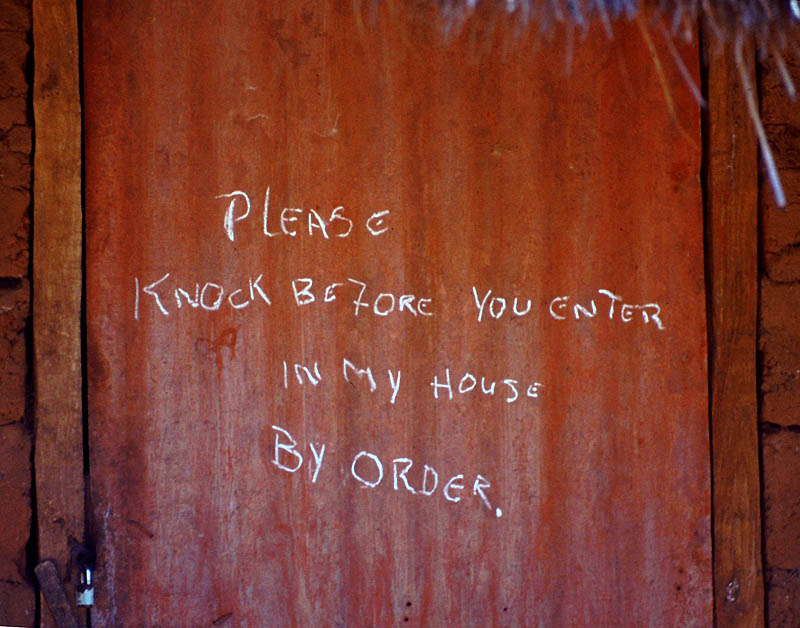 PLEASE
KNOCK BEFORE YOU ENTER
IN MY HOUSE
BY ORDER.